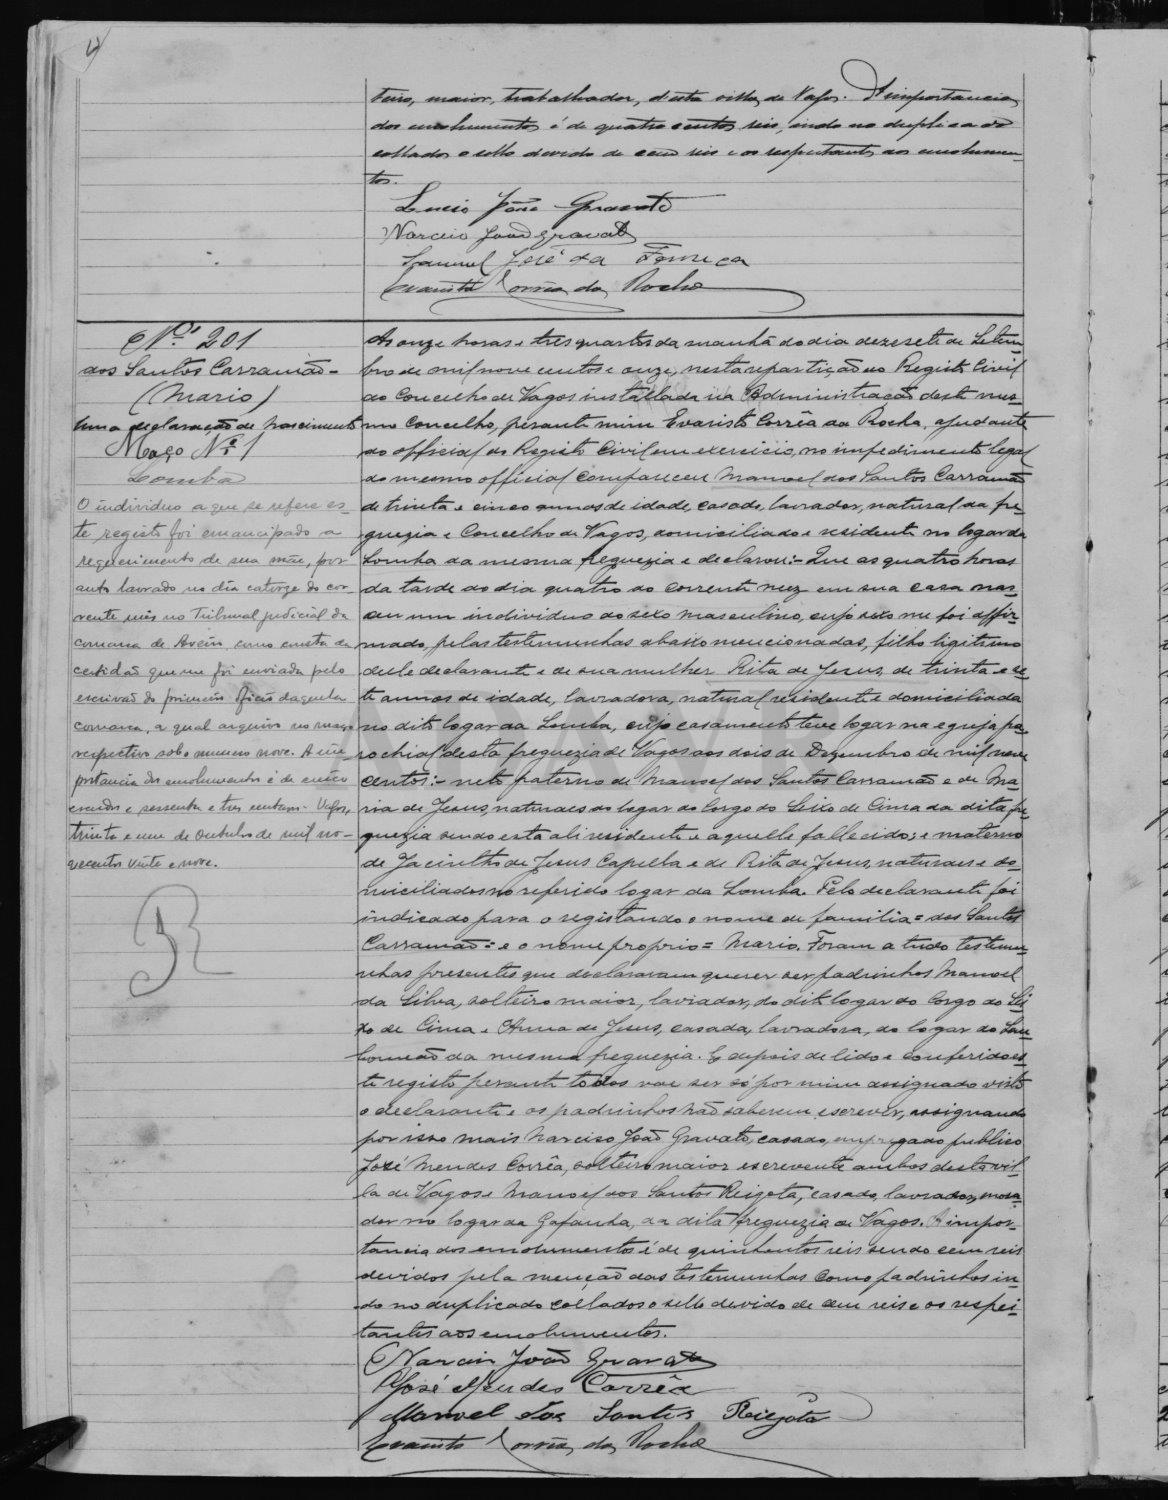 teiro, maior, trabalhador, desta villa de Vagos. A importancia
dos emolumentos é de quatrocentos reis, indo no duplicado
collados o sello devido de cem reis e os respeitantes aos emolumen-
tos.
Lucio João Gravato
Narciso João Gravato
Samuel José da Fonseca
Evaristo Corrêa da Rocha
N.º 201
dos Santos Carramão -
(Mario)
Uma declaração de nascimento
Maço N.º 1
Lomba
O individuo a que se refere es-
te registo foi emancipado a
requerimento de sua mãe, por
auto lavrado no dia catorze do cor-
rente mês no Tribunal judicial da
comarca de Aveiro como consta da
certidão que me foi enviada pelo
escrivão do primeiro oficio daquela
comarca, a qual arquivo no maço
respectivo sob o numero nove. A im-
portancia dos emolumentos é de cinco
escudos e sessenta e tres centavos. Vagos,
trinta e um de Outubro de mil no-
vecentos vinte e nove.
R
As onze horas e tres quartos da manhã do dia dezesete de Setem-
bro de mil nove centos e onze, nesta repartição do Registo Civil
do Concelho de Vagos installada na Administração deste mes-
mo Concelho, perante mim Evaristo Corrêa da Rocha, ajudante
do official do Registo Civil em exercicio, no impedimento legal
do mesmo official compareceu Manoel dos Santos Carramão
de trinta e cinco annos de idade, casado, lavrador, natural da fre-
guezia e Concelho de Vagos, domiciliado e residente no logar da
Lomba da mesma freguezia e declarou:- Que as quatro horas
da tarde do dia quatro do corrente mez em sua casa nas-
ceu um individuo do sexo masculino, cujo sexo me foi affir-
mado, pelas testemunhas abaixo mencionadas, filho legitimo
delle declarante e de sua mulher Rita de Jesus, de trinta e se-
te annos de idade, lavradora, natural residente e domiciliada
no dito logar da Lomba, cujo casamento teve logar na egreja pa-
rochial desta freguezia de Vagos aos dois de Dezembro de mil nove
centos:- neto paterno de Manoel dos Santos Carramão e de Ma-
ria de Jesus, naturaes do logar do Corgo do Seixo de Cima da dita fre-
guezia sendo esta ali residente e aquelle fallecido; e materno
de Jacintho de Jesus Capella e de Rita de Jesus, naturaes e do-
miciliados no referido logar da Lomba. Pelo declarante foi
indicado para o registando o nome de familia = dos Santos
Carramão = e o nome proprio = Mario. Foram a tudo testemu-
nhas presentes que declararam querer ser padrinhos Manoel
da Silva, solteiro maior, lavrador, do dito logar do Corgo do Sei-
xo de Cima e Anna de Jesus, casada, lavradora, do logar do
da mesma freguezia. E depois de lido e conferido es-
te registo perante todos vae ser só por mim assignado visto
o declarante e os padrinhos não saberem escrever, assignando
por isso mais Narciso João Gravato, casado, empregado publico
José Mendes Corrêa, solteiro maior escrevente ambos desta vil-
la de Vagos e Manoel dos Santos Reigota, casado, lavrador, mora-
dor no logar da Gafanha, da dita freguezia de Vagos. A impor-
tancia dos emolumentos é de quinhentos reis sendo cem reis
devidos pela menção das testemunhas como padrinhos in-
do no duplicado collados o sello devido de cem reis e os respei-
tantes aos emolumentos.
Narciso João Gravato
José Mendes Corrêa
Manoel dos Santos Reigota
Evaristo Corrêa da Rocha